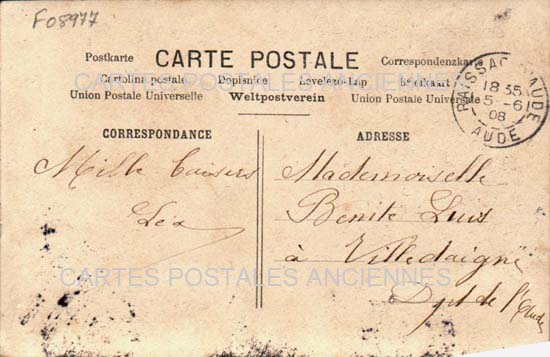 F08977
Postkarte CARTE POSTALE Correspondenzkarte
Cartolina postale Dopisnice Levelező-Lap Briefkaart
Union Postale Universelle Weltpostverein Union Postale Universelle
CARTES POSTALES ANCIENNES
RAISSAC D'AUDE
18 35
5 - 6
08
AUDE
CORRESPONDANCE
Mille baisers
Léa
ADRESSE
Mademoiselle
Benite Luis
à Villedaigne
Dpt de l'Aude
CARTES POSTALES ANCIENNES